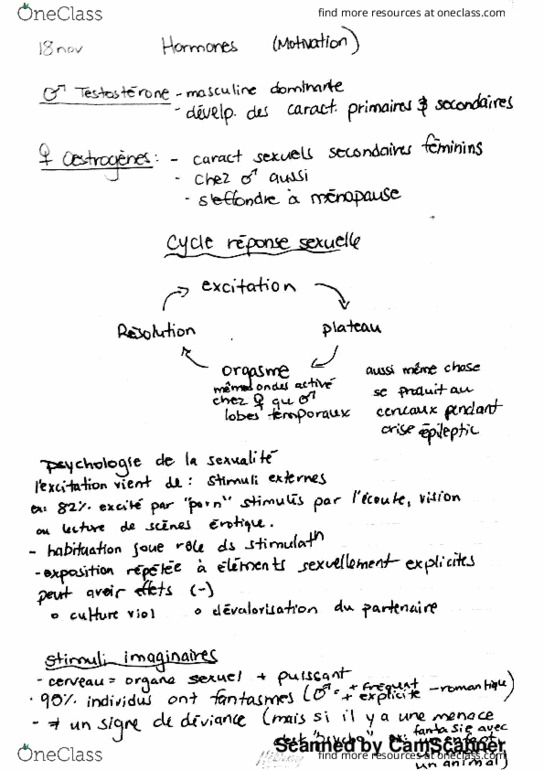 OneClass
find more resources at oneclass.com
18 nov Hormones (Motivation)
♂ Testostérone - masculine dominante
- dévelp. des caract. primaires & secondaires
♀ Oestrogènes: - caract sexuels secondaires féminins
- chez ♂ aussi
- s'effondre à ménopause
Cycle réponse sexuelle
excitation
Résolution
plateau
orgasme
mêmes ondes activé
chez ♀ que ♂
lobes temporaux
aussi même chose
se produit au
cerveaux pendant
crise épileptic
Psychologie de la sexualité
l'excitation vient de : stimuli externes
ex: 82% excité par "porn" stimulés par l'écoute, vision
ou lecture de scènes érotique.
- habituation joue rôle ds stimulatn
- exposition répétée à éléments sexuellement explicites
peut avoir effets (-)
o culture viol o dévalorisation du partenaire
Stimuli imaginaires
- cerveau = organe sexuel + puissant
- 90% individus ont fantasmes (♂ = + fréquent + explicite - romantique)
- ≠ un signe de déviance (mais si il y a une menace
fantasie avec
un enfant
un animal)
Scanned by CamScanner
OneClass
find more resources at oneclass.com